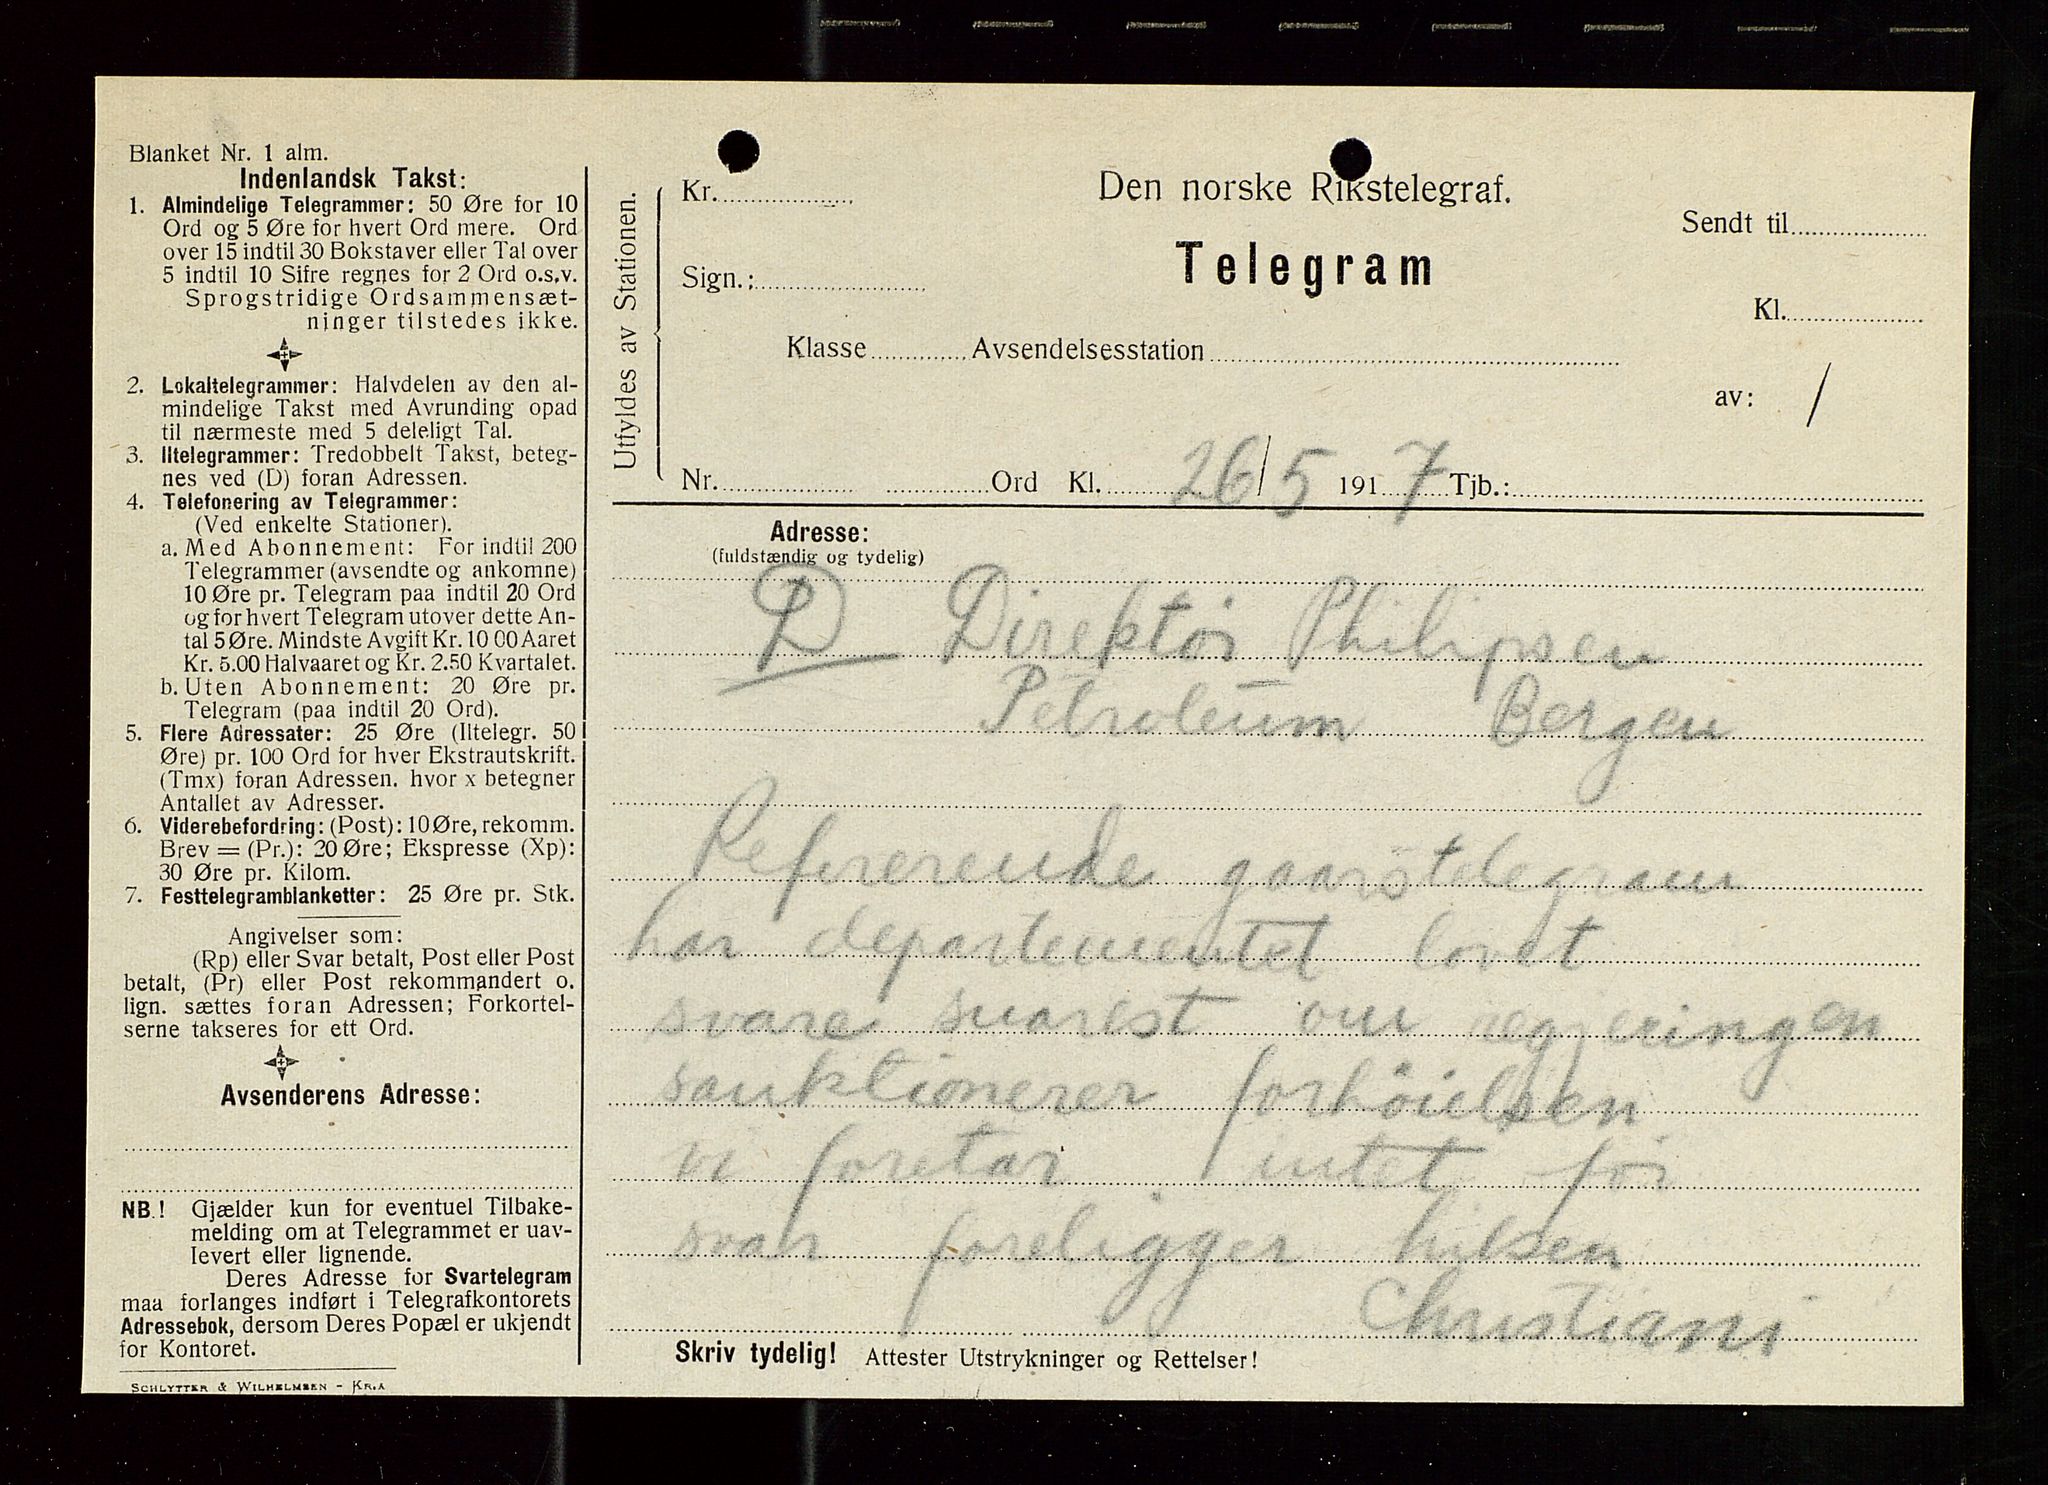 Blanket Nr. 1 alm.
Indenlandsk Takst:
1. Almindelige Telegrammer: 50 Øre for 10
Ord og 5 Øre for hvert Ord mere. Ord
over 15 indtil 30 Bokstaver eller Tal over
5 indtil 10 Sifre regnes for 2 Ord o.s.v.
Sprogstridige Ordsammensæt-
ninger tilstedes ikke.
2. Lokaltelegrammer: Halvdelen av den al-
mindelige Takst med Avrunding opad
til nærmeste med 5 deleligt Tal.
3. Iltelegrammer: Tredobbelt Takst, beteg-
nes ved (D) foran Adressen.
4. Telefonering av Telegrammer:
(Ved enkelte Stationer).
a. Med Abonnement: For indtil 200
Telegrammer (avsendte og ankomne)
10 Øre pr. Telegram paa indtil 20 Ord
og for hvert Telegram utover dette An-
tal 5 Øre. Mindste Avgift Kr. 10 00 Aaret
Kr. 5.00 Halvaaret og Kr. 2.50 Kvartalet.
b. Uten Abonnement: 20 Øre pr.
Telegram (paa indtil 20 Ord).
5. Flere Adressater: 25 Øre (Iltelegr. 50
Øre) pr. 100 Ord for hver Ekstrautskrift.
(Tmx) foran Adressen. hvor x betegner
Antallet av Adresser.
6. Viderebefordring: (Post): 10 Øre, rekomm.
Brev = (Pr.): 20 Øre; Ekspresse (Xp):
30 Øre pr. Kilom.
7. Festtelegramblanketter: 25 Øre pr. Stk.
Angivelser som:
(Rp) eller Svar betalt, Post eller Post
betalt, (Pr) eller Post rekommandert o.
lign. sættes foran Adressen; Forkortel-
serne takseres for ett Ord.
Avsenderens Adresse:
NB.! Gjælder kun for eventuel Tilbake-
melding om at Telegrammet er uav-
levert eller lignende.
Deres Adresse for Svartelegram
maa forlanges indført i Telegrafkontorets
Adressebok, dersom Deres Popæl er ukjendt
for Kontoret.
SCHLYTTER & WILHELMSEN - KR.A
Utfyldes av Stationen.
Kr.
Den norske Rikstelegraf.
Sendt til
Sign.:
Telegram
Kl.
Klasse Avsendelsesstation
av: /
Nr. Ord Kl. 26/5 1917 Tjb.:
Adresse:
(fuldstændig og tydelig)
D Direktör Philipsen
Petroleum Bergen
Refererende gaarstelegram
har departementet lovet
svare snarest om regjeringen
sanktionerer forhöielsen
vi foretar intet för
svar foreligger hilsen
Christiani
Skriv tydelig! Attester Utstrykninger og Rettelser!